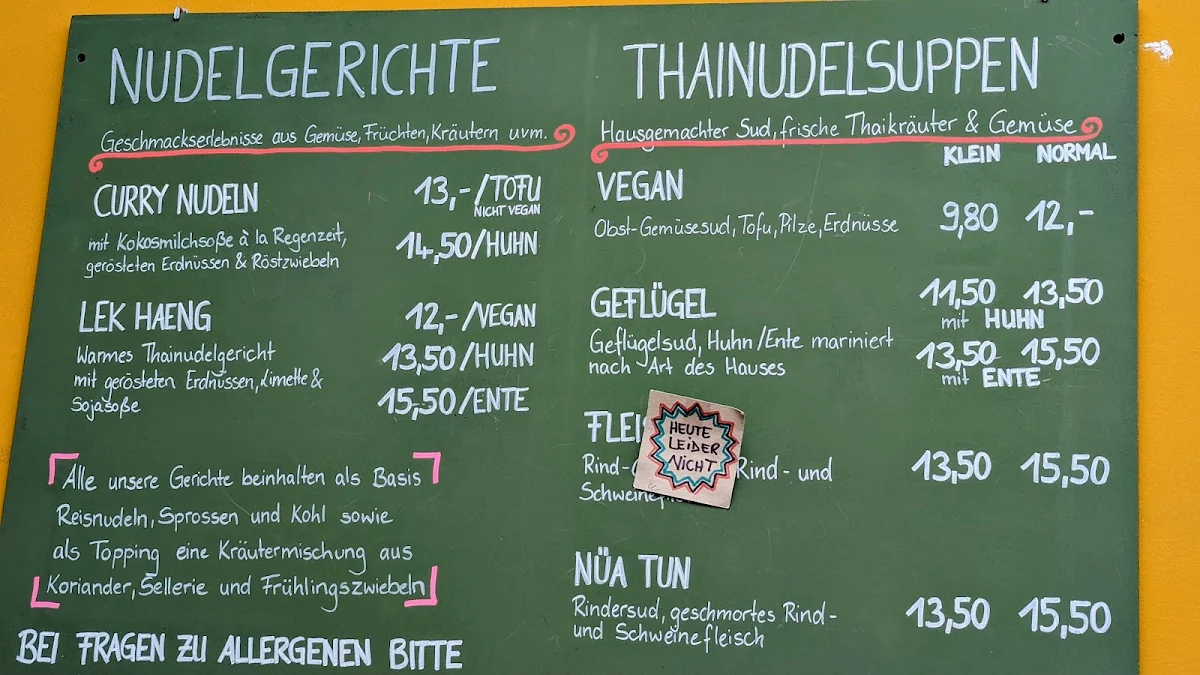 NUDELGERICHTE
Geschmackserlebnisse aus Gemüse, Früchten, Kräutern uvm.
CURRY NUDELN
13,-/TOFU
NICHT VEGAN
mit Kokosmilchsoße à la Regenzeit,
gerösteten Erdnüssen & Röstzwiebeln
14,50/HUHN
LEK HAENG
12,-/VEGAN
Warmes Thainudelgericht
mit gerösteten Erdnüssen, Limette &
Sojasoße
13,50/HUHN
15,50/ENTE
Alle unsere Gerichte beinhalten als Basis
Reisnudeln, Sprossen und Kohl sowie
als Topping eine Kräutermischung aus
Koriander, Sellerie und Frühlingszwiebeln
BEI FRAGEN ZU ALLERGENEN BITTE
THAINUDELSUPPEN
Hausgemachter Sud, frische Thaikräuter & Gemüse
KLEIN NORMAL
VEGAN
Obst-Gemüsesud, Tofu, Pilze, Erdnüsse
9,80 12,-
GEFLÜGEL
Geflügelsud, Huhn/Ente mariniert
nach Art des Hauses
11,50 13,50
mit HUHN
13,50 15,50
mit ENTE
HEUTE
LEIDER
NICHT
Rind- Rind- und
13,50 15,50
NÜA TUN
Rindersud, geschmortes Rind-
und Schweinefleisch
13,50 15,50